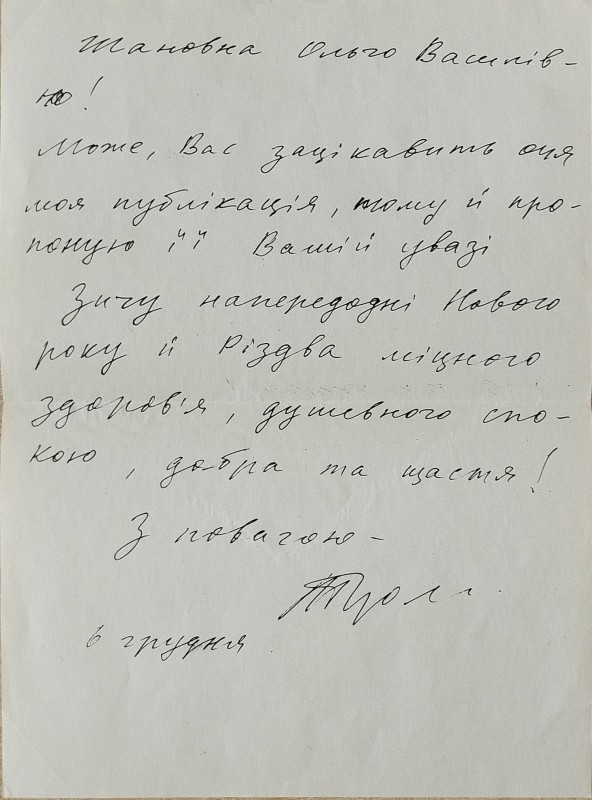 Шановна Ольго Василів-
но!
Може, Вас зацікавить оця
моя публікація, тому й про-
поную її Вашій увазі
Зичу напередодні Нового
року й Різдва міцного
здоров'я, душевного спо-
кою, добра та щастя!
З повагою -
6 грудня